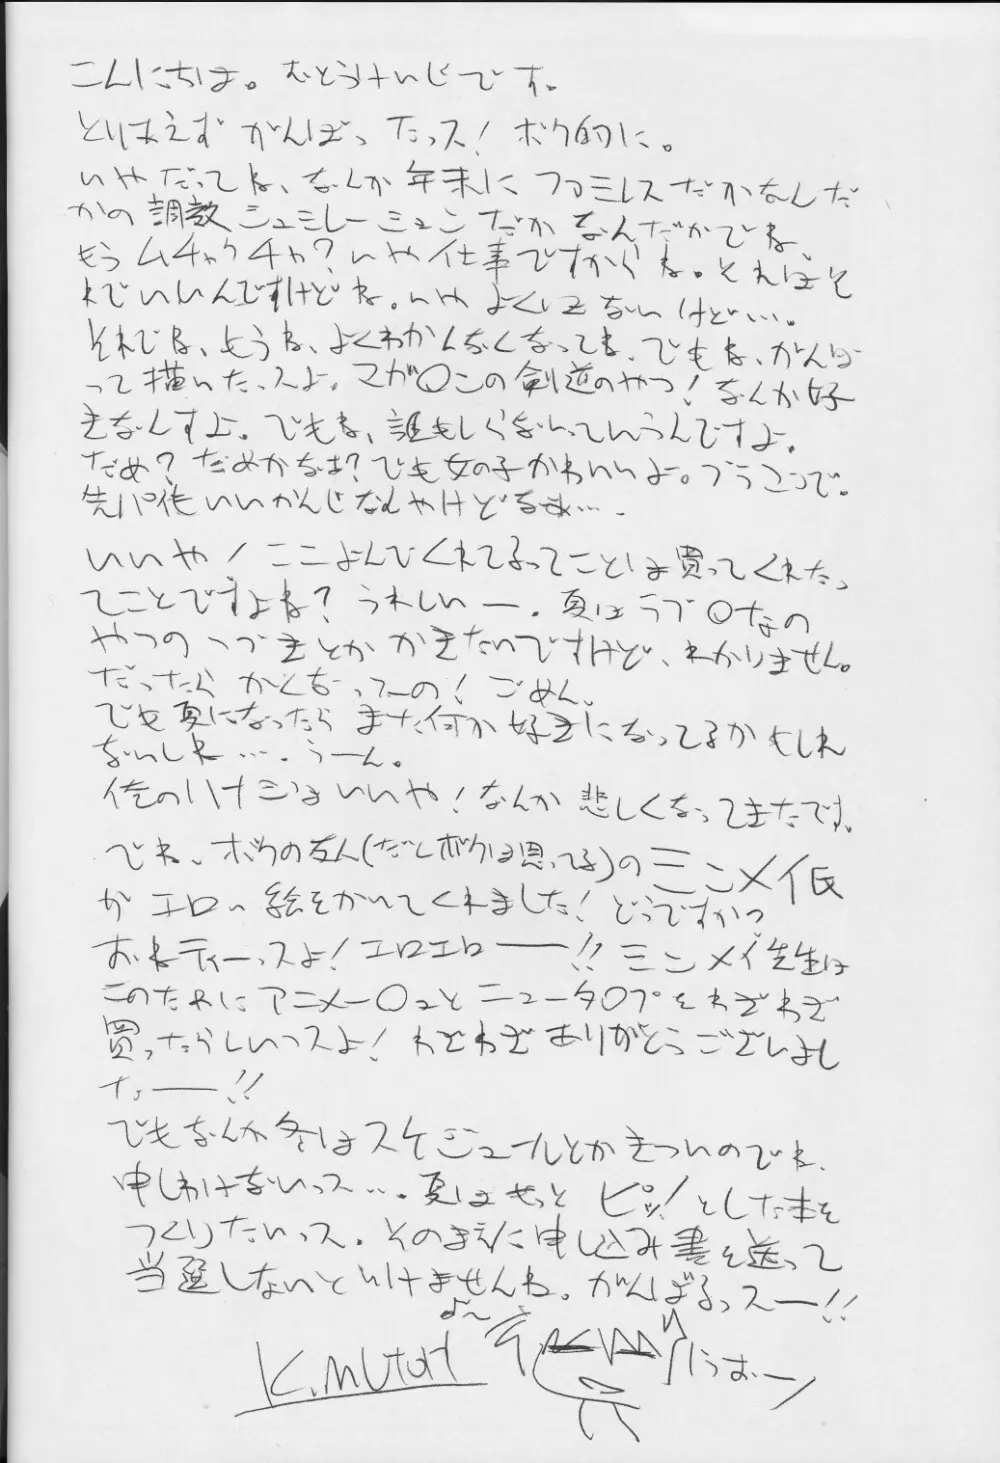 こんにちは。むとうけいじです。
とりあえずがんばったっス！ボク的に。
いやだってね、なんか年末にファミレスだかなんだ
かの調教シュミレーションだかなんだかでね、
もうムチャクチャ？いや仕事ですからね。それはそ
れでいいんですけどね。いやよくはないけど…。
それでね、もうね、よくわかんなくなってね、でもね、がんば
って描いたっスよ。マガ○この剣道のやつ！なんか好
きなんすよ。でもね、誰もしらないっていうんですよ。
だめ？だめかなぁ？でも女の子かわいいよ。ブラコンで。
先パイもいいかんじなんやけどなぁ…．
いいや！ここよんでくれてるってことは買ってくれたっ
てことですよね？うれしいー．夏はラブ○なの
やつのつづきとかかきたいですけど、わかりません。
だったらかくなってーの！ごめん。
でも夏になったらまた何か好きになってるかもしれ
ないしね…．うーん。
俺のハナシはいいや！なんか悲しくなってきたです。
でね、ボクの友人(だとボクは思ってる)のミンメイ氏
がエロい絵をかいてくれました！どうですかっ
おねティーっスよ！エロエロー!!ミンメイ先生は
このためにアニメー○ュとニュータ○プをわざわざ
買ったらしいっスよ！わざわざありがとうございまし
たー!!
でもなんか冬はスケジュールとかきついのでね、
申しわけないっス…．夏はもっとピッ！とした本を
つくりたいっス．そのまえに申し込み書を送って
当選しないといけませんね。がんばるっスー!!
よ～
K.MUTOH
うおー